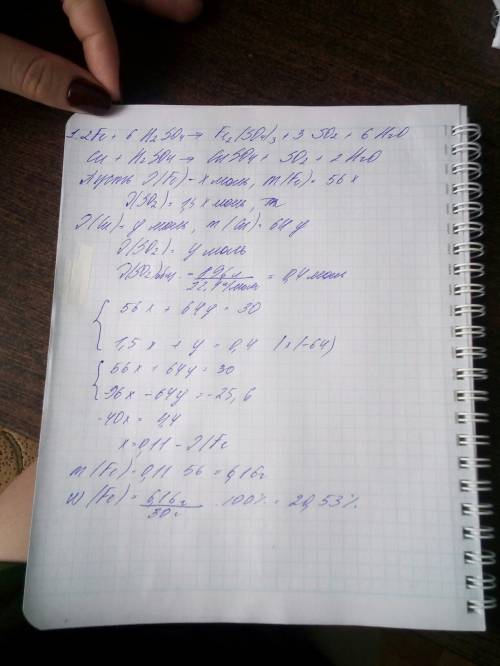 1. 2Fe + 6 H2SO4 → Fe2(SO4)3 + 3 SO2 + 6 H2O
Cu + H2SO4 → CuSO4 + SO2 + 2 H2O
Пусть ν(Fe) - x моль, m(Fe) = 56 x
ν(SO2) = 1,5 x моль, m
ν(Cu) = y моль, m(Cu) = 64 y
ν(SO2) = y моль
ν(SO2) = 8,96 л / 22,4 л/моль = 0,4 моль
56x + 64y = 30
1,5x + y = 0,4 | x (-64)
56x + 64y = 30
-96x - 64y = -25,6
-40x = 4,4
x = 0,11 - ν(Fe
m(Fe) = 0,11 · 56 = 6,16 г
W(Fe) = 6,16 г / 30 г · 100% = 20,53%